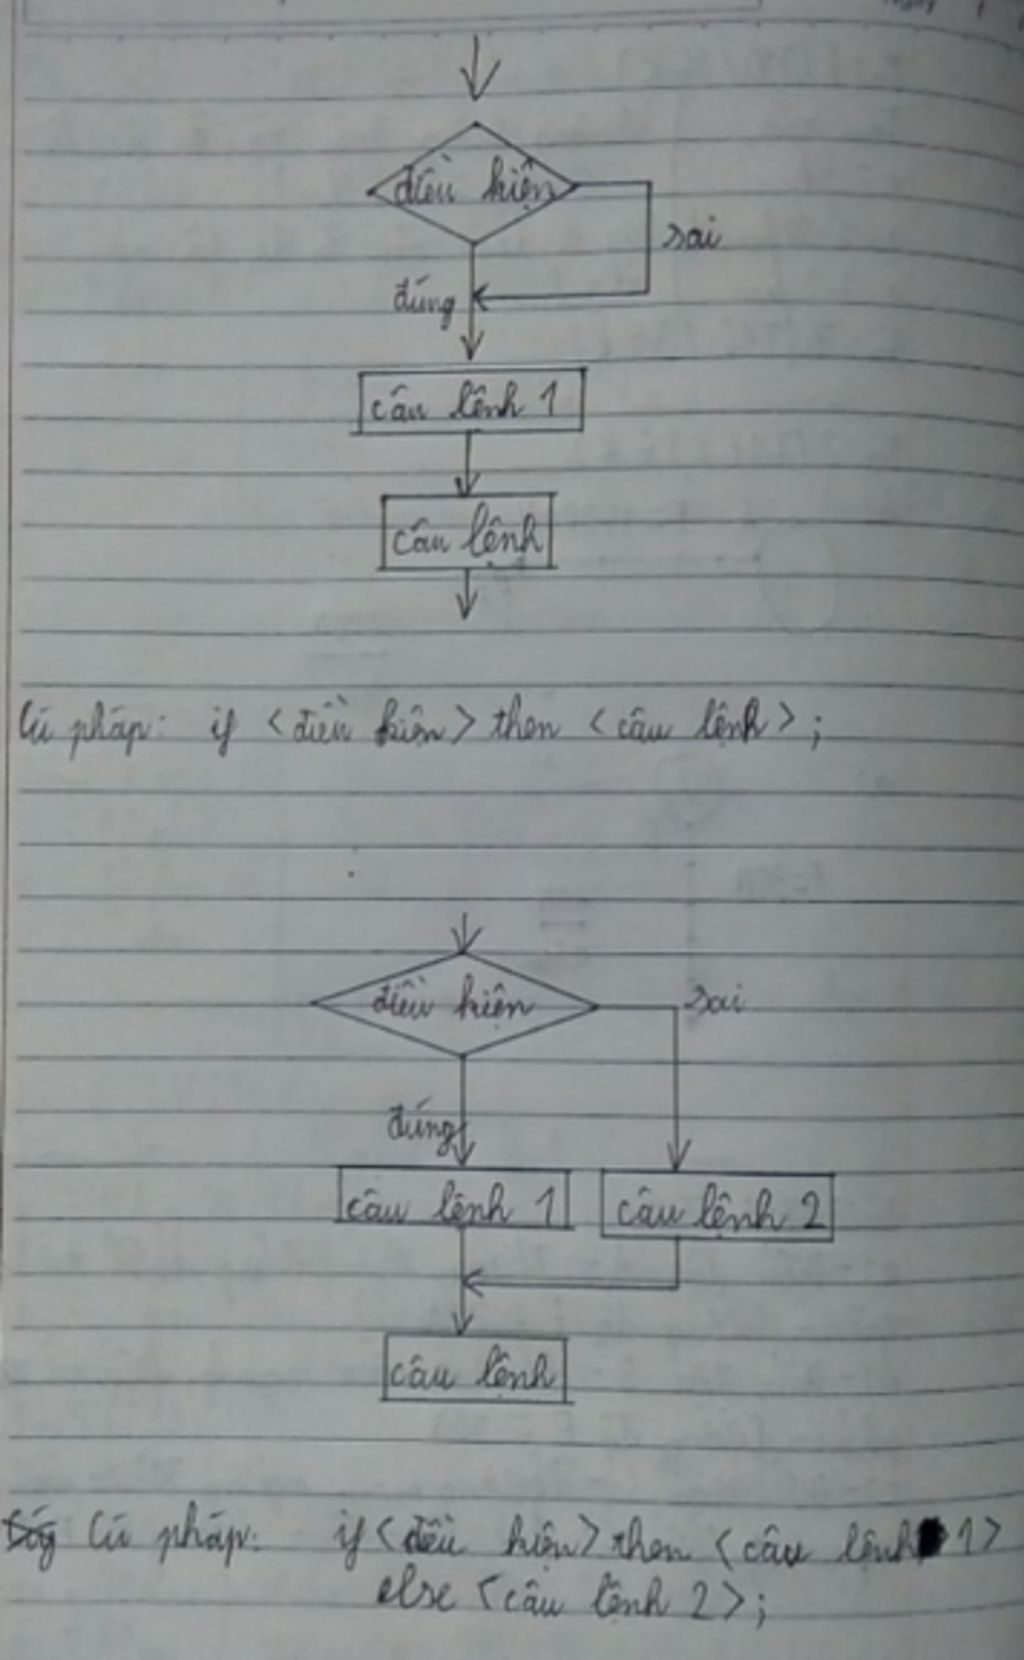 điều kiện
sai
đúng
câu lệnh 1
câu lệnh
Cú pháp: if <điều kiện> then <câu lệnh>;
điều kiện
sai
đúng
câu lệnh 1 câu lệnh 2
câu lệnh
Cú pháp: if <điều kiện> then <câu lệnh 1>
else <câu lệnh 2>;